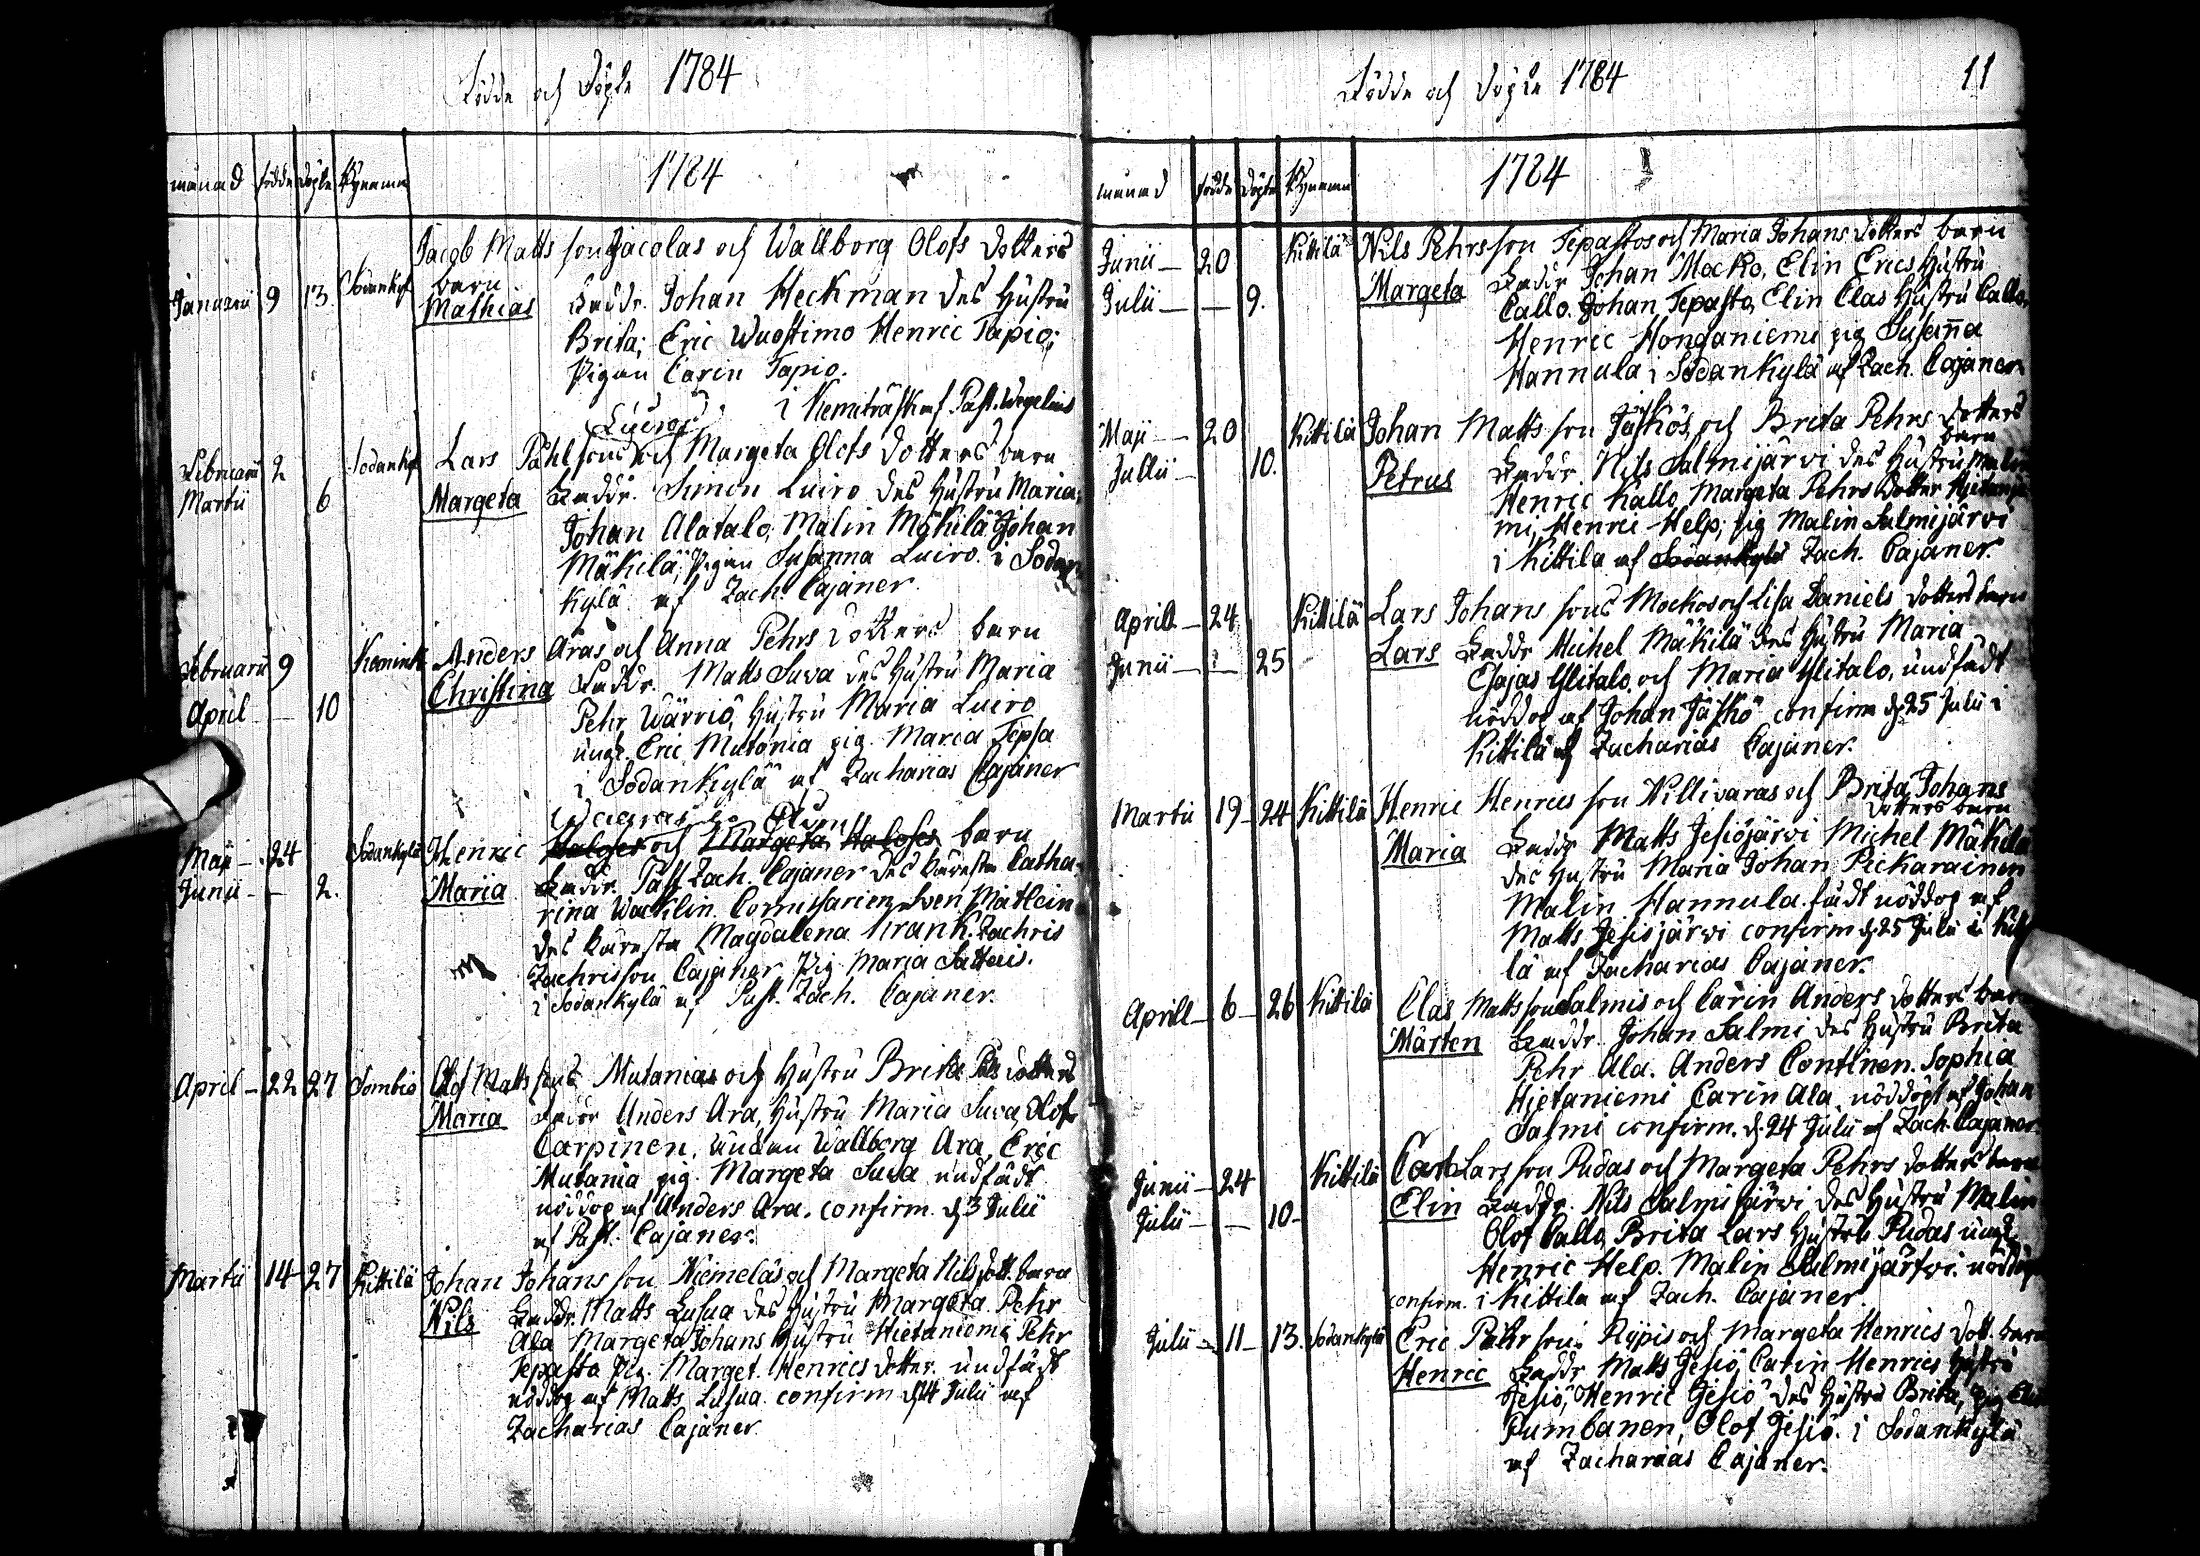 Födde och Döpte 1784
månad födde Döpte Byarne 1784
Jacob Matts son Jacolas och Wallborg Olofs Dotters
Januarii 9 13 Sodankyl barn
Mathias Faddr. Johan Heckman des Hustru
Brita; Eric Wuostimo Henric Tapio;
Pigan Carin Tapio.
i Kemiträsk af Past. Wegelius
Luiro
Februarii 2 Sodankyl Lars Påhlsons och Margeta Olofs Dotters barn
Martii 6 Margeta Faddr. Simon Luiro des Hustru Maria;
Johan Alatalo, Malin Mäkilä Johan
Mäkilä; Pigan Susanna Luiro. i Sodan
kylä af Zach. Cajaner.
Februarii 9 Kemink Anders Aras och Anna Pehrs Dotters barn
April — 10 Christina Faddr. Matts Suva des Hustru Maria
Pehr Wärriö, Hustru Maria Luiro
ungk. Eric Mutania pig. Maria Tepsa
i Sodankylä af Zacharias Cajaner
Maji — 24 Sodankylä Henric Halofer och Margeta Halofes barn
Junii — 2. Maria Faddr. Past. Zach. Cajaner des Käresta Catha-
rina Wacklin. Comissarien Sven Matlein
des Käresta Magdalena Krank. Zachris
Zachrisson Cajaner Pig. Maria
i Sodankylä af Past. Zach. Cajaner.
April — 22 27 Sombio Olof Mattssons Mutanias och Hustru Brita Påls Dotters
Maria Faddr Anders Ara, Hustru Maria Suva, Olof
Carpinen, Wallborg Ara, Eric
Mutania pig. Margeta Suva undfådt
nöddop af Anders Ara. confirm. d. 3 Julii
af Past. Cajaner.
Martii 14 27 Kittilä Johan Johans son Niemeläs och Margeta Nils dott. barn
Nils Faddr. Matts Lusua des Hustru Margeta. Pehr
Ala Margeta Johans Hustru Hietaniemi, Pehr
Tepasto Pig. Marget. Henrics dotter. undfådt
nöddop af Matts Lusua confirm d. 14 Julii af
Zacharias Cajaner.
Födde och Döpte 1784 11
månad födde Döpte Byarne 1784
Junii — 20 Kittilä Nils Pehrsson Tepastos och Maria Johans Dotters barn
Julii — — 9. Margeta Faddr Johan Mocko, Elin Erics Hustru
Callo. Johan Tepasto, Elin Clas Hustru Callo,
Henric Honganiemi pig Susanna
Hannula i Sodankylä af Zach. Cajaner.
Maji — 20 Kittilä Johan Matts son Jäskös, och Brita Pehrs Dotters
barn
Julii — 10. Petrus Faddr. Nils Salmijärvi des Hustru Malin
Henric Kallo, Margeta Pehrs Dotter Hietanie
mi, Henric Help; pig Malin Salmijärvi
i Kittila af Sodankylä Zach. Cajaner.
Aprill — 24 Kittilä Lars Johans sons Mockos och Lisa Daniels Dotters barn
Junii — — 25 Lars Faddr Michel Mäkilä des Hustru Maria
Esajas Ylitalo, och Maria Ylitalo, undfådt
nöddop af Johan Jäskö confirm d. 25 Julii i
Kittilä af Zacharias Cajaner.
Martii 19 — 24 Kittilä Henric Henrics son Nillivaras och Brita Johans
Dotters barn
Maria Faddr Matts Jesiöjärvi Michel Mäkilä
des Hustru Maria Johan Pickarainen
Malin Hannula. fådt nöddop af
Matts Jesiöjärvi confirm d. 25 Julii i Kitti
lä af Zacharias Cajaner.
Aprill — 6 — 26 Kittilä Clas Matts son Salmis och Carin Anders Dotters barn
Mårten Faddr. Johan Salmi des Hustru Brita
Pehr Ala. Anders Continen. Sophia
Hietaniemi Carin Ala, nöddöpt af Johan
Salmi confirm. d. 24 Julii af Zach. Cajaner.
Junii — 24 Kittilä Carl Lars son Pudas och Margeta Pehrs Dotters barn
Julii — — 10 — Elin Faddr. Nils Salmijärvi, des Hustru Malin
Olof Callo, Brita Lars Hustru Pudas ungk.
Henric Help. Malin Salmijärfwi. nöddöpt
confirm. i Kittila af Zach. Cajaner.
Julii — 11 — 13. Sodankylä Eric Pehr sons Rypis och Margeta Henrics Dott. barn
Henric Faddr Matts Jesiö, Carin Henrics Hustru
Jesiö, Henric Jesiö des Hustru Brita, pig Elin
Pumbanen, Olof Jesiö. i Sodankylä
af Zacharias Cajaner.